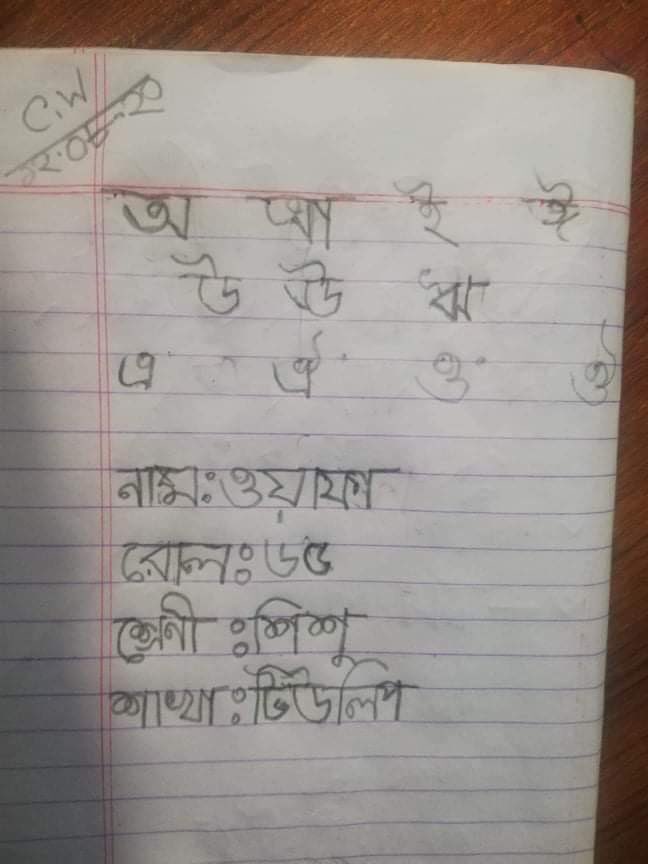 C.W
১২.০৮.২০
অ আ ই ঈ
উ ঊ ঋ
এ ঐ ও ঔ
নাম:ওয়াফা
রোল:৬৫
শ্রেনী :শিশু
শাখা:টিউলিপ